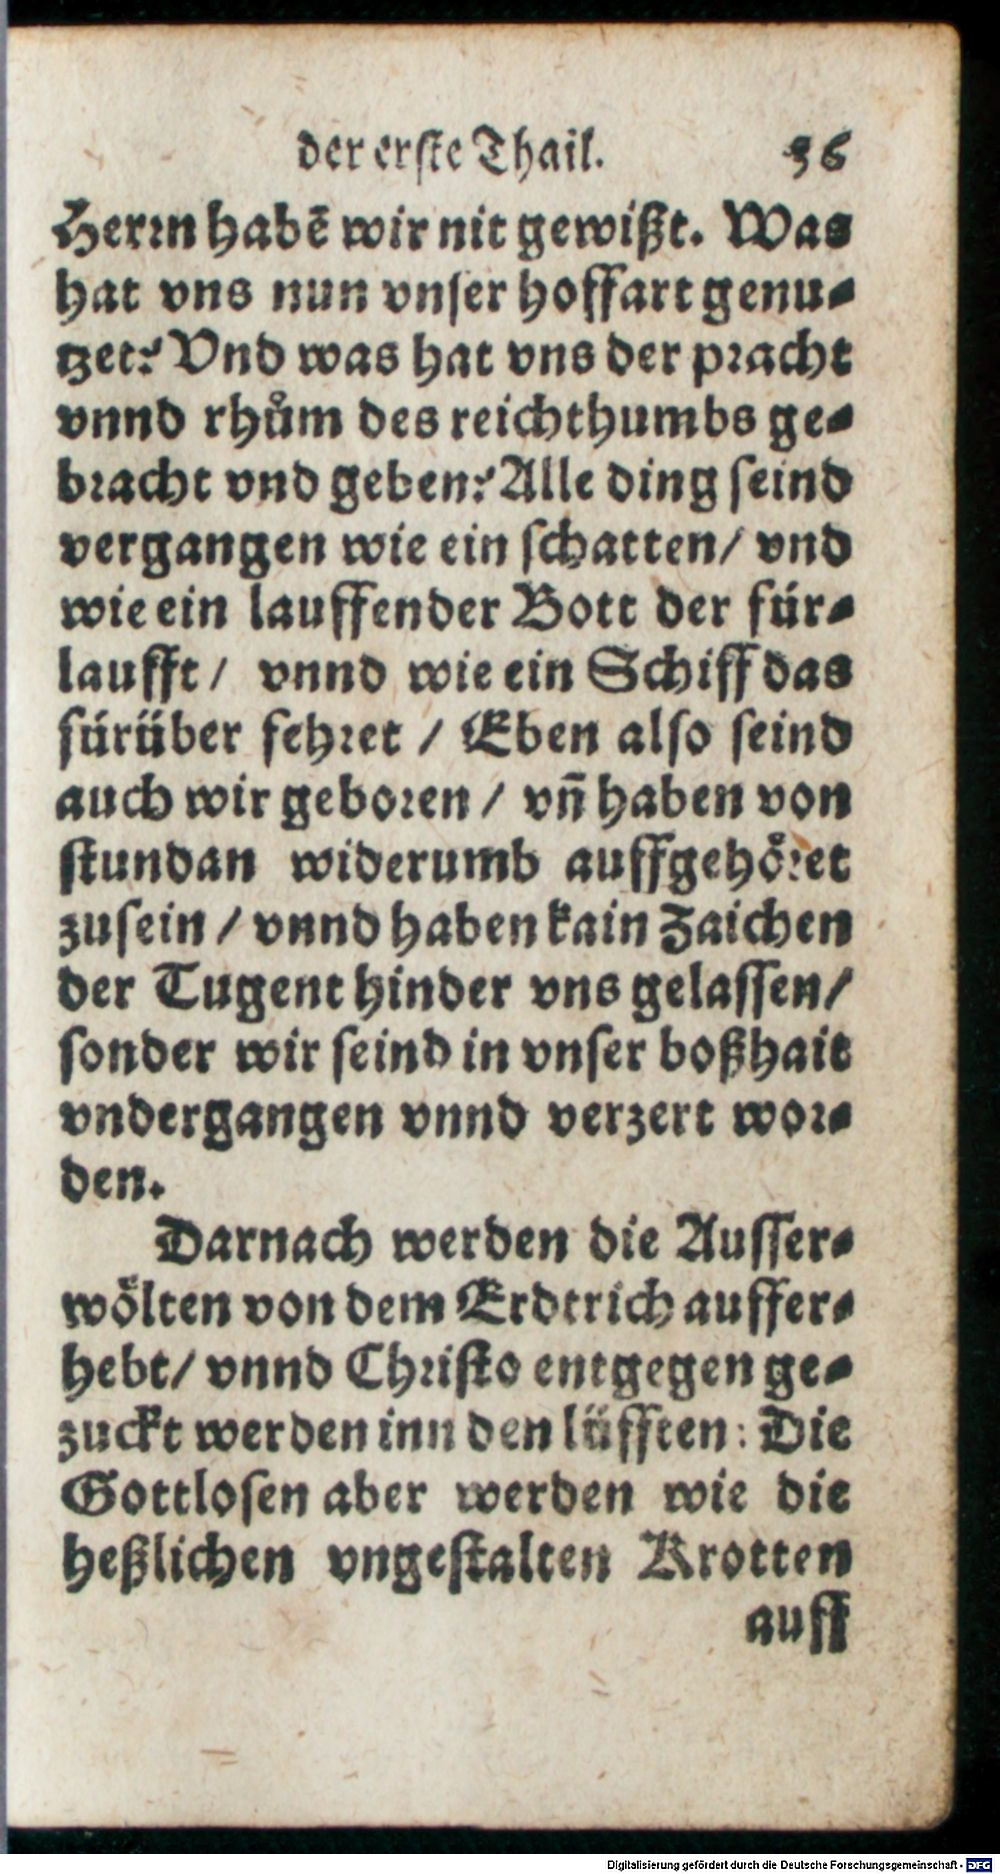 der erste Thail. 36
Herrn habē wir nit gewißt. Was
hat vns nun vnser hoffart genu-
tzet? Vnd was hat vns der pracht
vnnd rhům des reichthumbs ge-
bracht vnd geben? Alle ding seind
vergangen wie ein schatten/ vnd
wie ein lauffender Bott der für-
laufft/ vnnd wie ein Schiff das
fürüber fehret / Eben also seind
auch wir geboren / vn̄ haben von
stundan widerumb auffgehöret
zusein / vnnd haben kain Zaichen
der Tugent hinder vns gelassen/
sonder wir seind in vnser boßhait
vndergangen vnnd verzert wor-
den.
Darnach werden die Ausser-
wölten von dem Erdtrich auffer-
hebt/ vnnd Christo entgegen ge-
zuckt werden inn den lüfften: Die
Gottlosen aber werden wie die
heßlichen vngestalten Krotten
auff
Digitalisierung gefördert durch die Deutsche Forschungsgemeinschaft - DFG